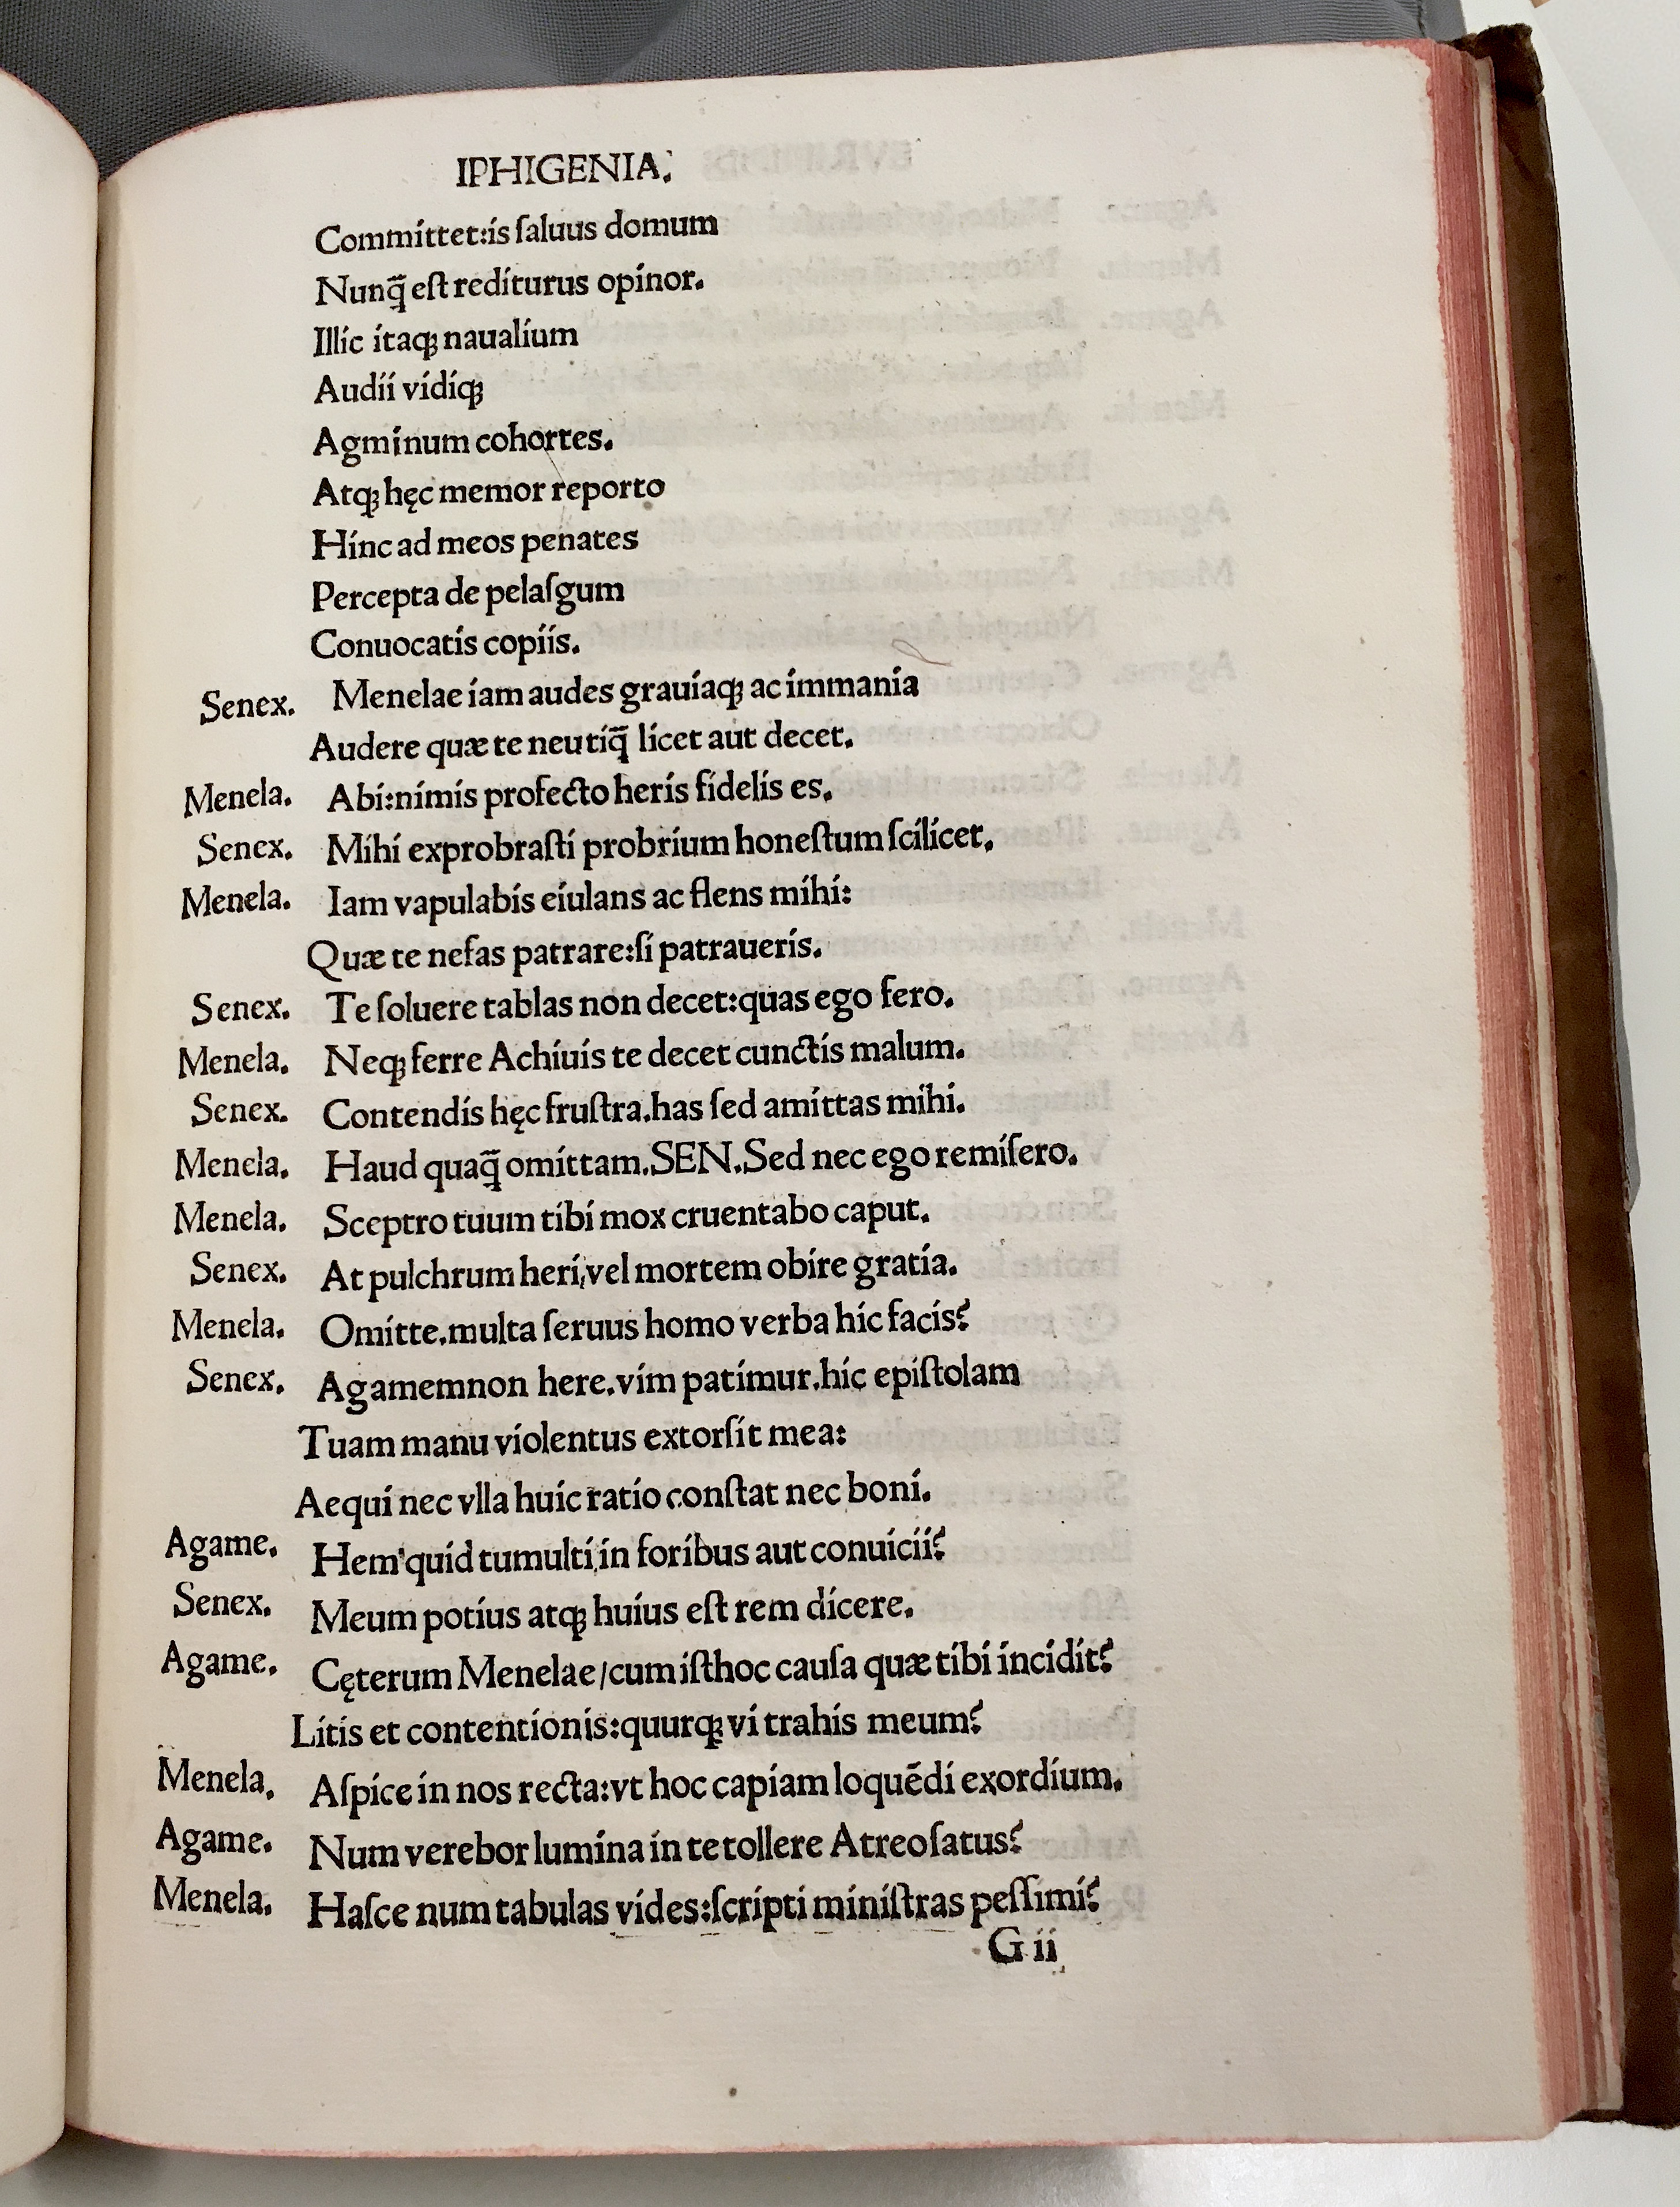 IPHIGENIA.
Committet:is ſaluus domum
Nunq̃ eſt rediturus opinor.
Illic itaqꝫ naualium
Audii vidiqꝫ
Agminum cohortes.
Atqꝫ hęc memor reporto
Hinc ad meos penates
Percepta de pelaſgum
Conuocatis copiis.
Senex. Menelae iam audes grauiaqꝫ ac immania
Audere quæ te neutiq̃ licet aut decet.
Menela. Abi:nimis profecto heris fidelis es.
Senex. Mihi exprobraſti probrium honeſtum ſcilicet.
Menela. Iam vapulabis eiulans ac flens mihi:
Quæ te nefas patrare:ſi patraueris.
Senex. Te ſoluere tablas non decet:quas ego fero.
Menela. Neqꝫ ferre Achiuis te decet cunctis malum.
Senex. Contendis hęc fruſtra.has ſed amittas mihi.
Menela. Haud quaq̃ omittam.SEN.Sed nec ego remiſero.
Menela. Sceptro tuum tibi mox cruentabo caput.
Senex. At pulchrum heri,vel mortem obire gratia.
Menela. Omitte.multa ſeruus homo verba hic facis?
Senex. Agamemnon here.vim patimur.hic epiſtolam
Tuam manu violentus extorſit mea:
Aequi nec vlla huic ratio conſtat nec boni.
Agame. Hem'quid tumulti,in foribus aut conuicii?
Senex. Meum potius atqꝫ huius eſt rem dicere.
Agame. Cęterum Menelae/cum iſthoc cauſa quæ tibi incidit?
Litis et contentionis:quurqꝫ vi trahis meum?
Menela. Aſpice in nos recta:vt hoc capiam loquēdi exordium.
Agame. Num verebor lumina in te tollere Atreo ſatus?
Menela. Haſce num tabulas vides:ſcripti miniſtras peſſimi?
G ii